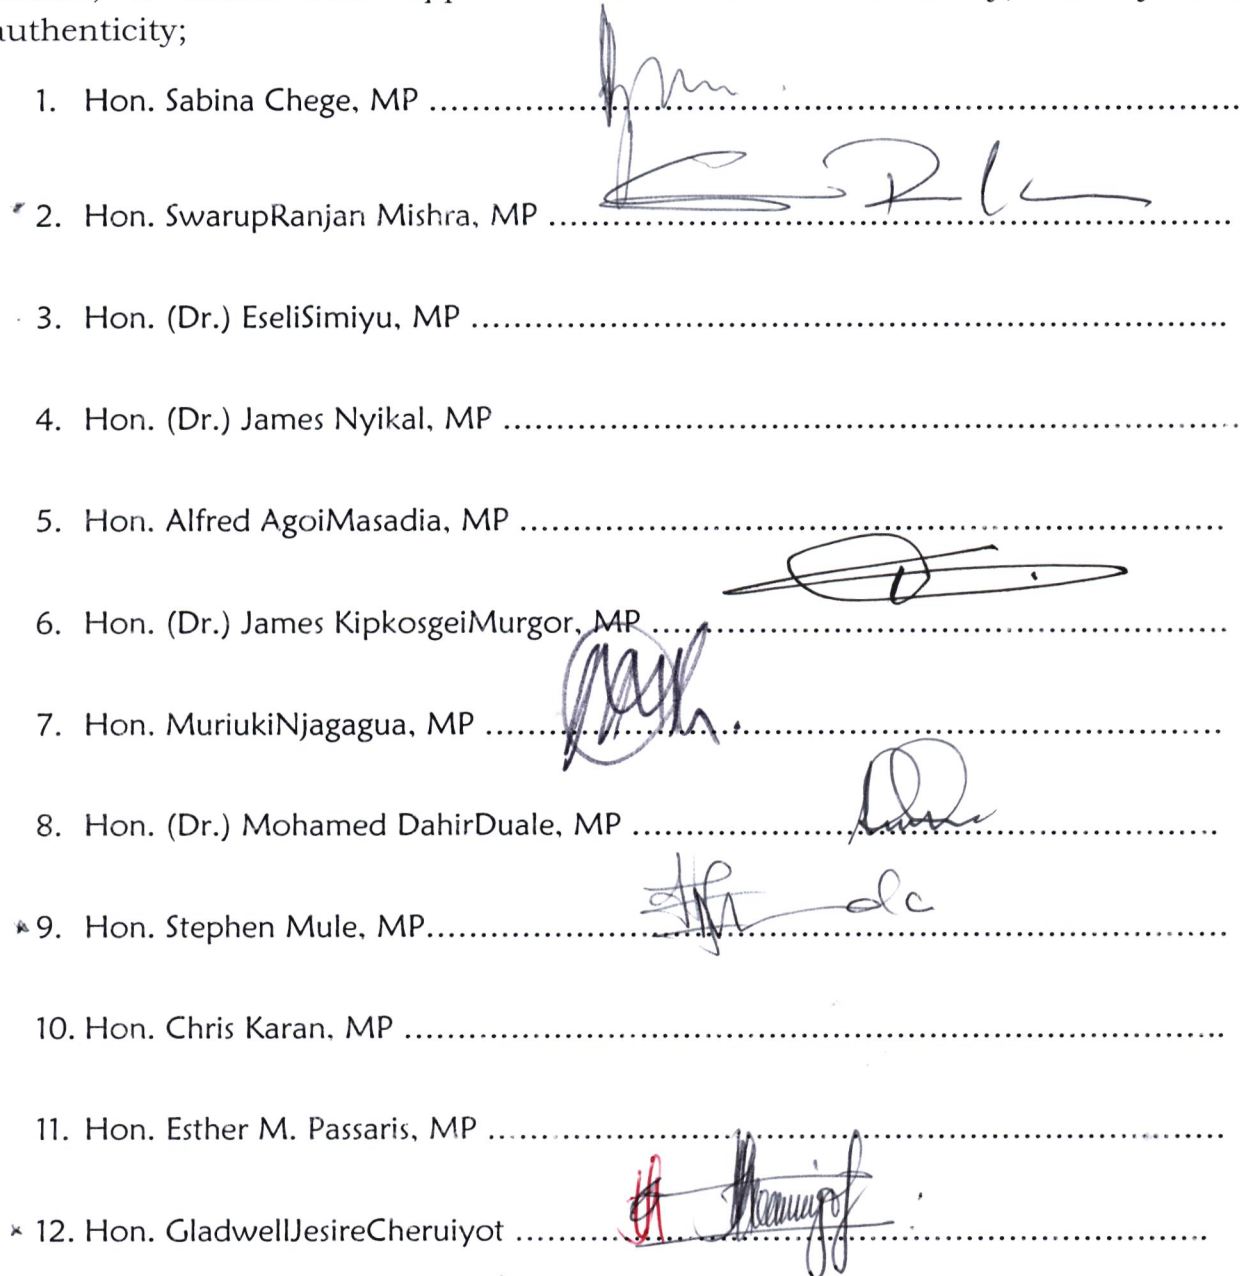 authenticity;
1. Hon. Sabina Chege, MP ........................................................
2. Hon. SwarupRanjan Mishra, MP ........................................................
3. Hon. (Dr.) EseliSimiyu, MP ........................................................
4. Hon. (Dr.) James Nyikal, MP ........................................................
5. Hon. Alfred AgoiMasadia, MP ........................................................
6. Hon. (Dr.) James KipkosgeiMurgor, MP ........................................................
7. Hon. MuriukiNjagagua, MP ........................................................
8. Hon. (Dr.) Mohamed DahirDuale, MP ........................................................
9. Hon. Stephen Mule, MP........................................................
10. Hon. Chris Karan, MP ........................................................
11. Hon. Esther M. Passaris, MP ........................................................
12. Hon. GladwellJesireCheruiyot ........................................................